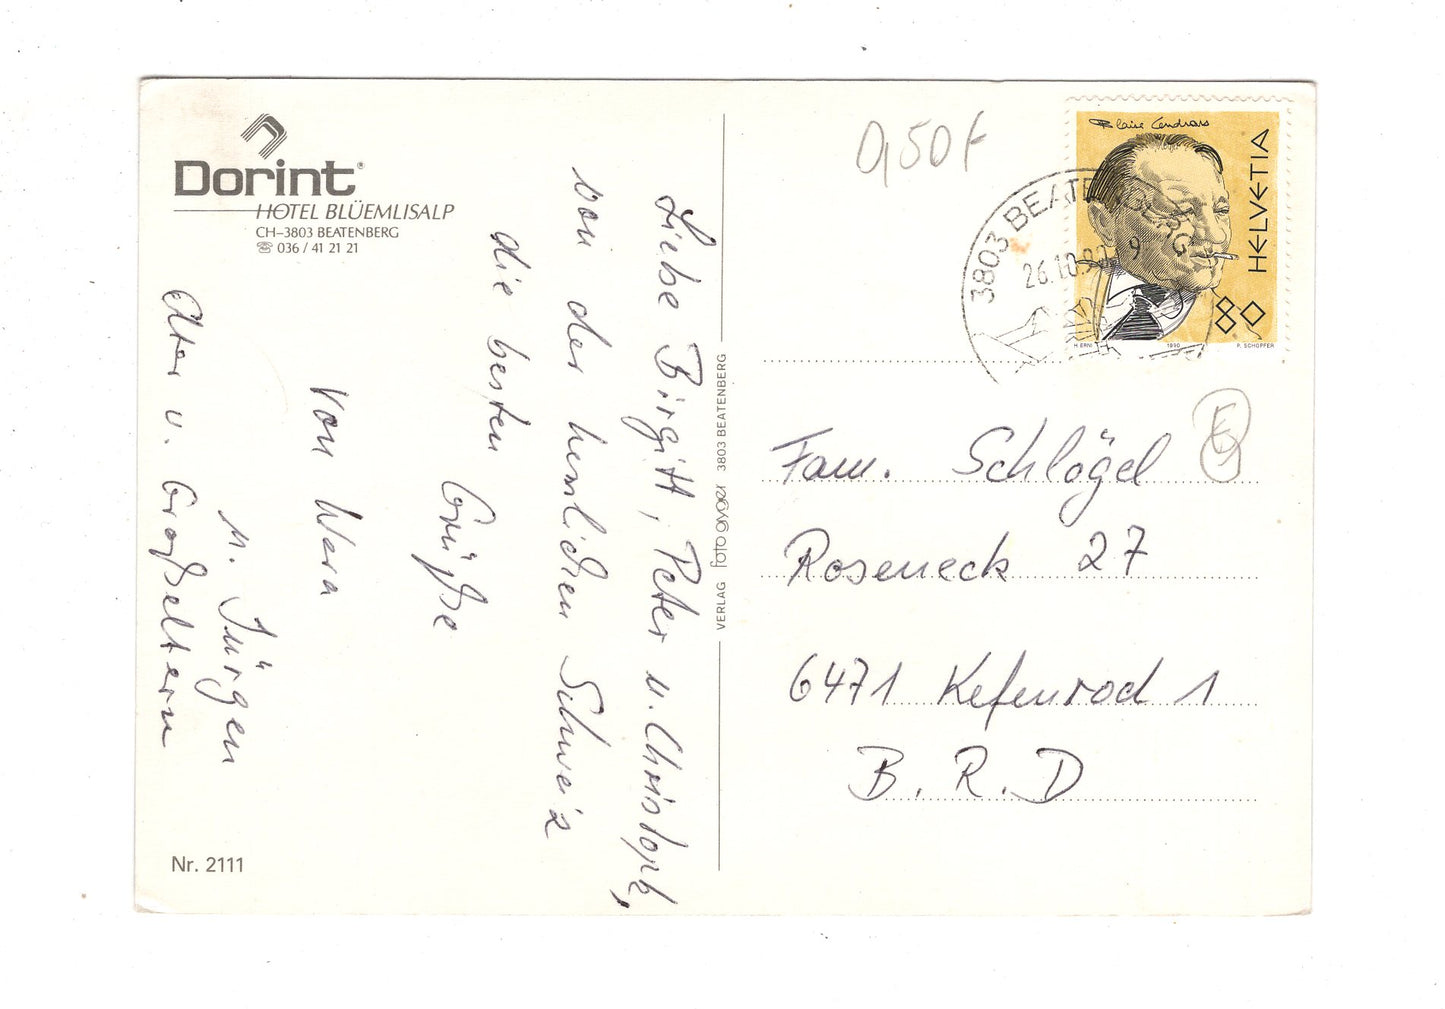 Dorint®
HOTEL BLÜEMLISALP
CH–3803 BEATENBERG
☏ 036 / 41 21 21
Liebe Birgitt, Peter u. Christoph,
von der herrlichen Schweiz
die besten Grüße
von Wera
u. Jürgen
Eltern u. Großeltern
Nr. 2111
VERLAG foto gyger 3803 BEATENBERG
0,50 f
3803 BEATENBERG
26.10.90. 9
Blaise Cendrars
HELVETIA
80
H. ERNI 1990 P. SCHOPFER
Fam. Schlögel
Roseneck 27
6471 Kefenrod 1
B. R. D